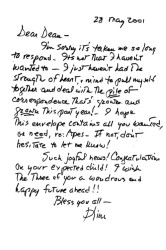 23 May 2001
Dear Dean —
I'm sorry it's taken me so long
to respond. It's not that I haven't
wanted to — I just haven't had the
strength of heart & mind to pull myself
together and deal with the pile of
correspondence that's grown and
grown this past year. I hope
this envelope contains all you wanted,
or need, re: Apes — If not, don't
hesitate to let me know!
Such joyful news! Congratulations
on your expected child! I wish
the three of you a wondrous and
happy future ahead!!
Bless you all —
Kim